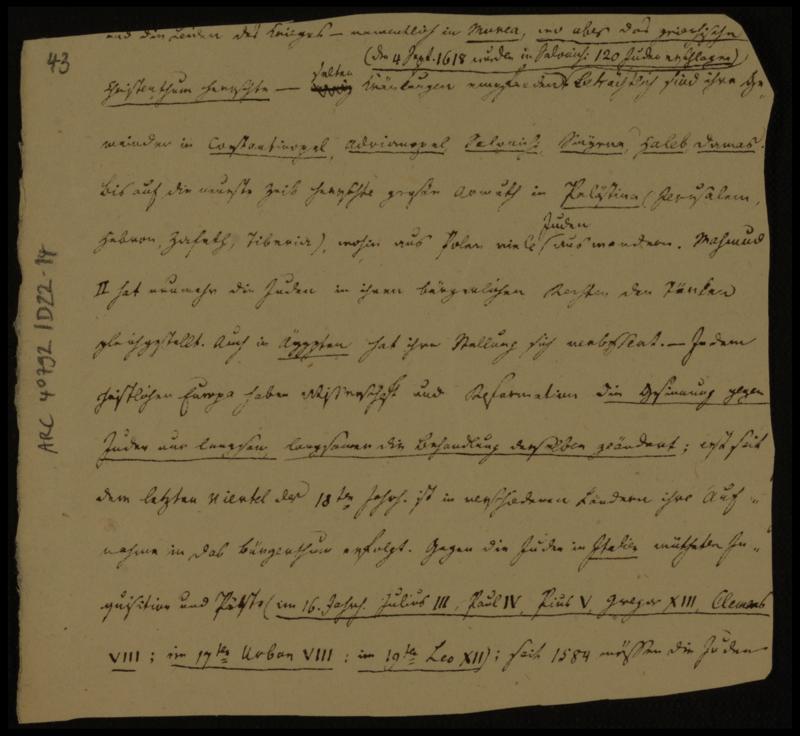 43
und den Leiden des Krieges – namentlich in Morea, wo aber das griechische
(den 4 Sept. 1618 wurden in Salonichi 120 Juden erschlagen)
Christenthum herrschte – selten Kränkungen Beträchtlich sind ihre Ge-
meinden in Constantinopel, Adrianopel Salonichi, Smyrna, Haleb, Damas.
Bis auf die neueste Zeit herrschte große Armuth in Palästina (Jerusalem,
Hebron, Zafeth, Tiberia), wohin aus Polen viele Juden auswandern. Mahmud
II hat nunmehr die Juden in ihren bürgerlichen Rechten den Türken
gleichgestellt. Auch in Ägypten hat ihre Stellung sich verbessert. – In dem
christlichen Europa haben Wissenschaft und Reformation die Gesinnung gegen
Juden nur langsam, langsamer die Behandlung derselben geändert; erst seit
dem letzten Viertel des 18ten Jahrh. ist in verschiedenen Ländern ihre Auf-
nahme in das Bürgerthum erfolgt. Gegen die Juden in Italien wütheten In-
quisition und Päbste (im 16. Jahrh. Julius III, Paul IV, Pius V, Gregor XIII, Clemens
VIII; im 17ten Urban VIII; im 19ten Leo XII); seit 1584 müssen die Juden
ARC 4°792 / D22-14